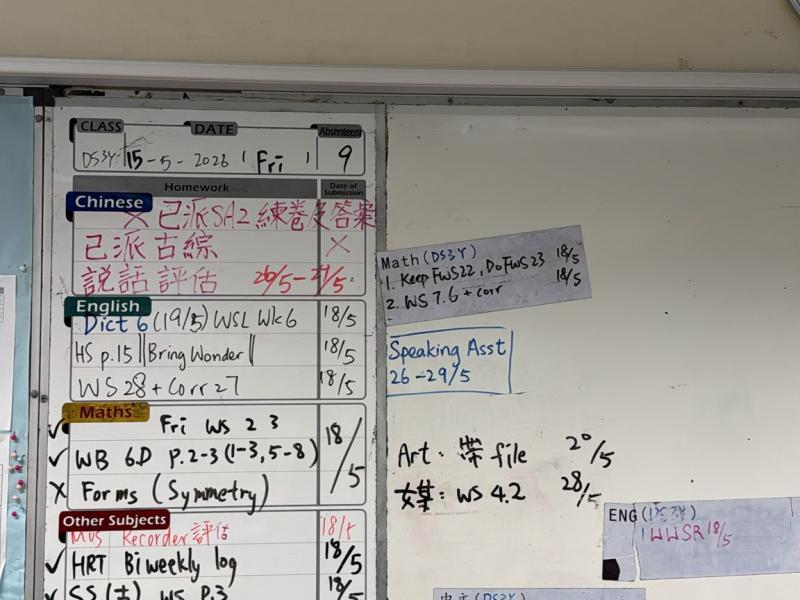 CLASS DATE Absentees
DS3Y 15-5-2026 ( Fri ) 9
Homework Date of Submission
Chinese
X 已派SA2練卷及答案
已派古綜 X
説話評估 26/5-29/5
English
Dict 6 (19/5) WSL Wk6 18/5
HS p.15 ||Bring Wonder|| 18/5
WS 28 + Corr 27 18/5
Maths
✓ Fri WS 23 18/5
✓ WB 6D P.2-3 (1-3, 5-8)
X Forms (Symmetry)
Other Subjects
Mus Recorder評估 18/5
✓ HRT Biweekly log 18/5
✓ SS(土) WS P.3 18/5
Math (DS3Y)
1. Keep FWS22, Do FWS23 18/5
2. WS 7.6 + corr 18/5
Speaking Asst
26-29/5
Art: 帶 file 20/5
WS 4.2 28/5
ENG (DS3Y)
1 WWSR 18/5
中文 (DS3Y)